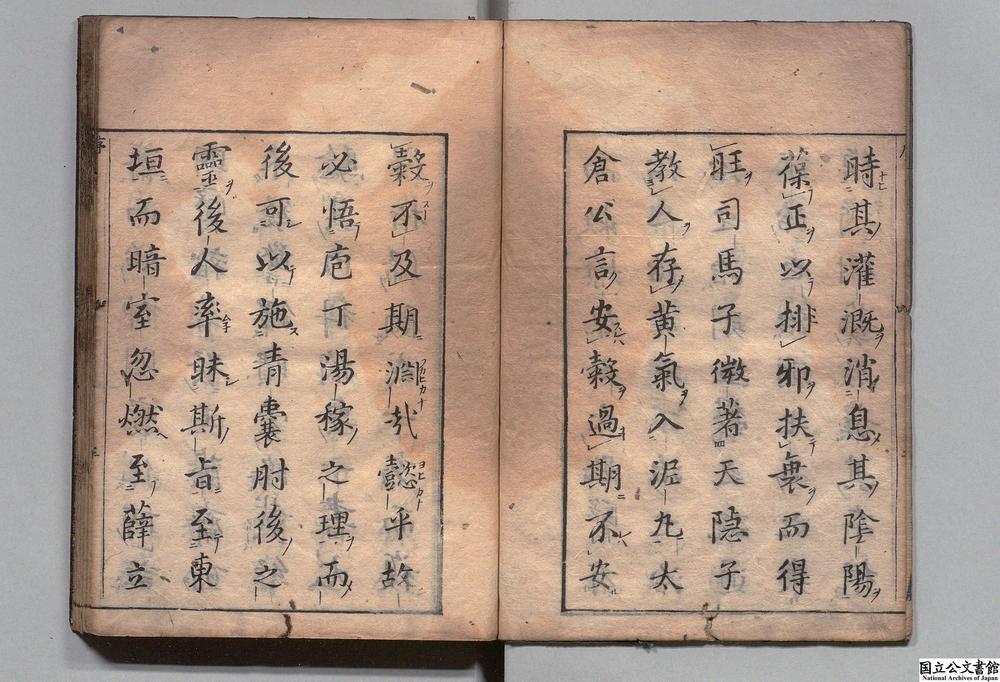 時其灌漑消息其陰陽
葆正以排邪扶衰而得
旺司馬子微著天隠子
教人存黄氣入泥丸太
倉公言安穀過期不安
穀不及期淵哉懿乎故
必悟庖丁湯稼之理而
後可以施青囊肘後之
靈後人率昧斯旨至東
垣而暗室忽燃至薛立
国立公文書館
National Archives of Japan